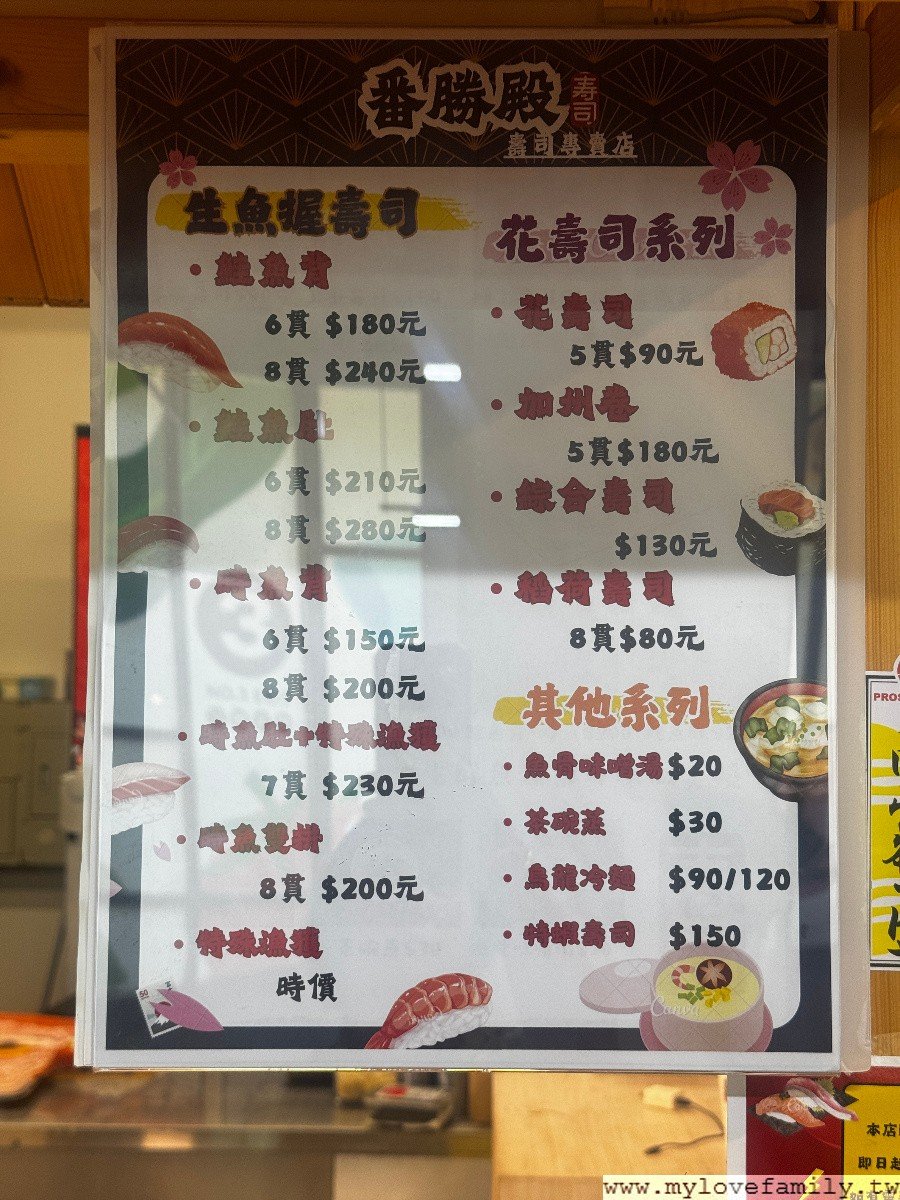 番勝殿
寿司
壽司專賣店
生魚握壽司
• 鮭魚背
6貫 $180元
8貫 $240元
• 鮭魚肚
6貫 $210元
8貫 $280元
• 時魚背
6貫 $150元
8貫 $200元
• 時魚肚+特殊漁獲
7貫 $230元
• 時魚雙拼
8貫 $200元
• 特殊漁獲
時價
花壽司系列
• 花壽司
5貫$90元
• 加州卷
5貫$180元
• 綜合壽司
$130元
• 稻荷壽司
8貫$80元
其他系列
• 魚骨味噌湯 $20
• 茶碗蒸 $30
• 烏龍冷麵 $90/120
• 特蝦壽司 $150
Canva
PROS
本店
即日起
www.mylovefamily.tw